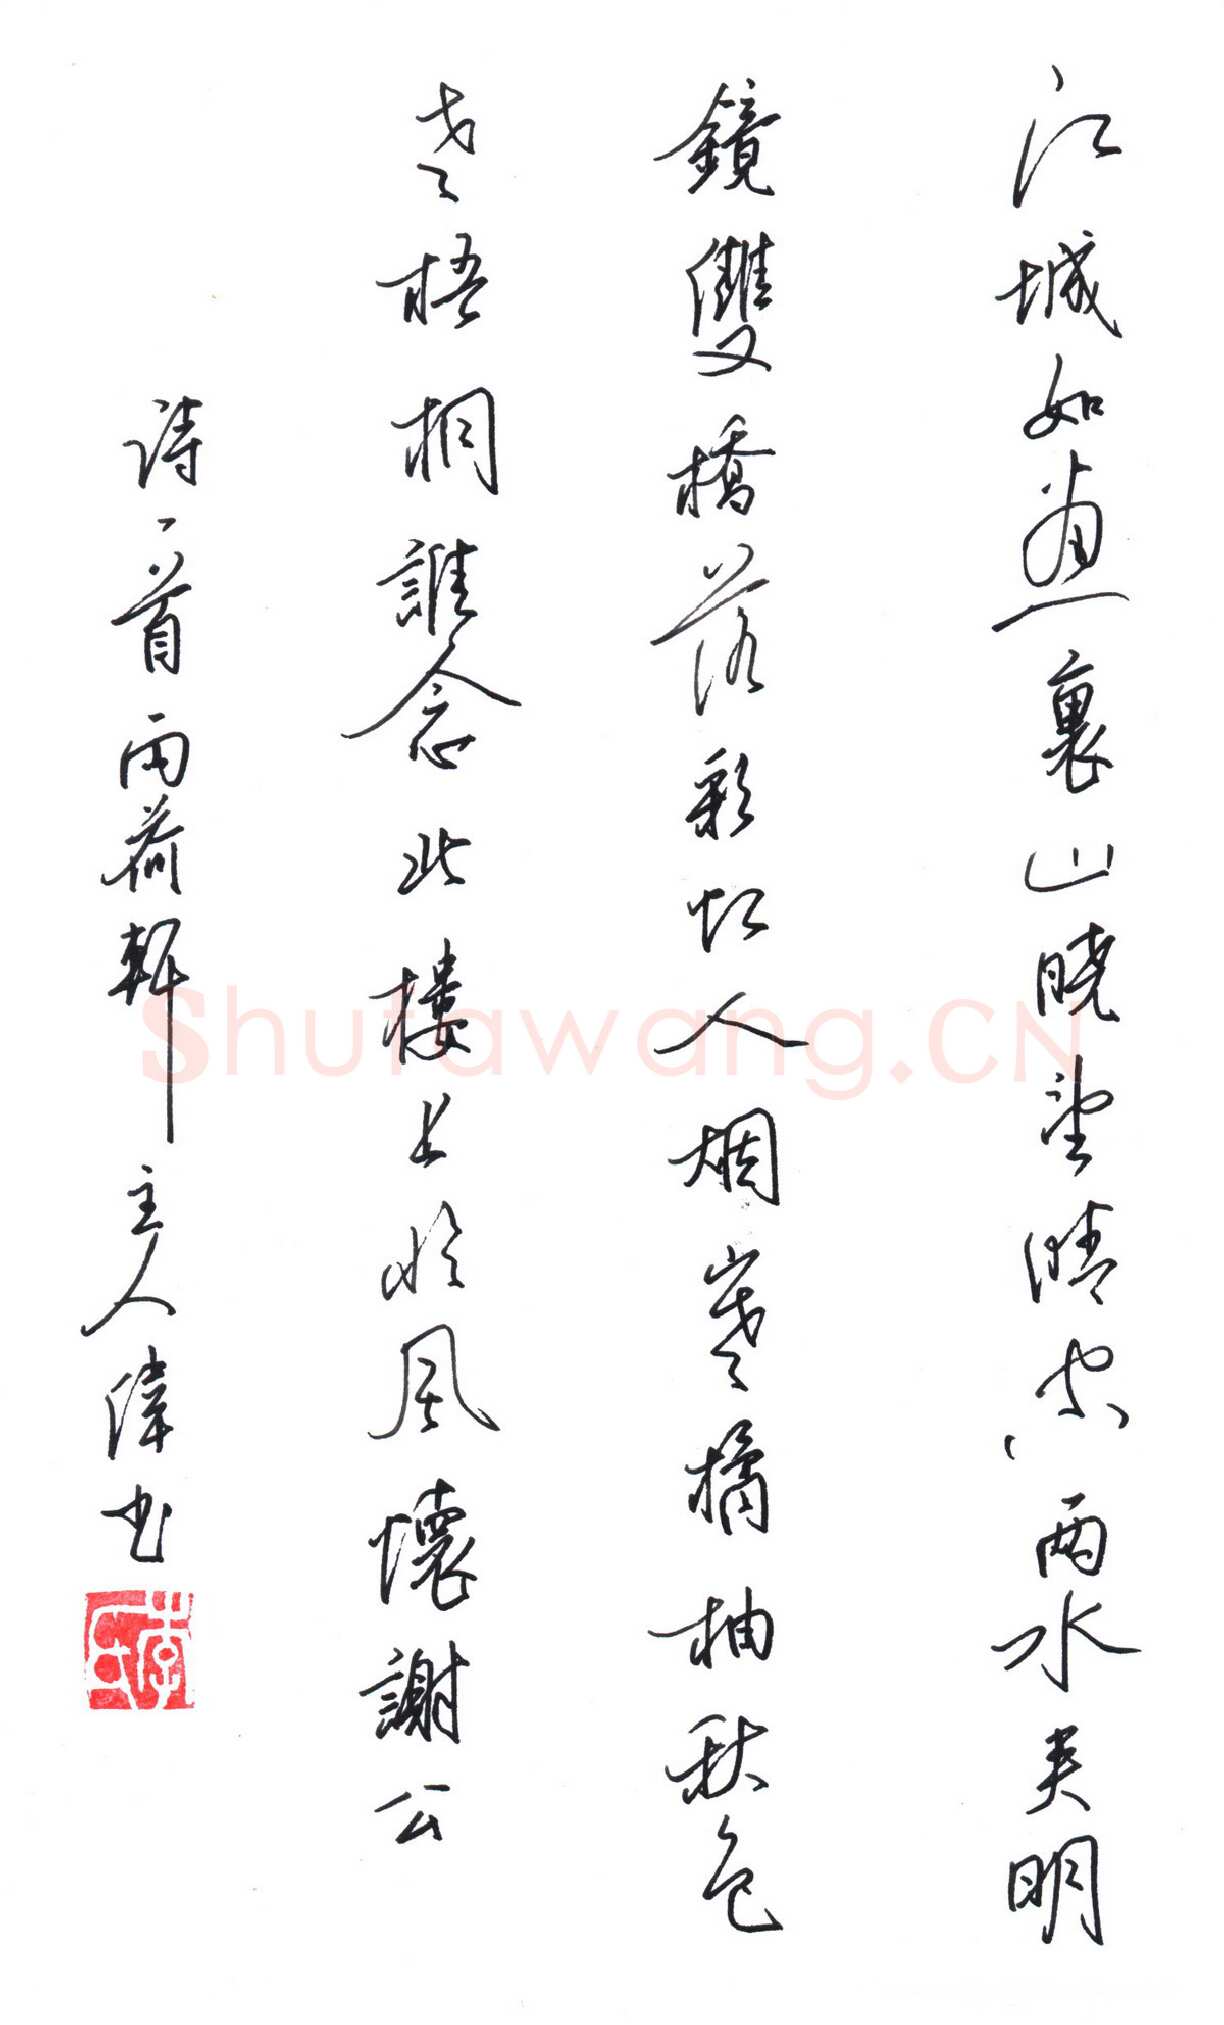 江城如畫裏山曉望晴空兩水夾明
鏡雙橋落彩虹人烟寒橘柚秋色
老梧桐誰念北樓上臨風懷謝公
詩一首雨荷軒主人偉書
李氏
Shufawang.CN